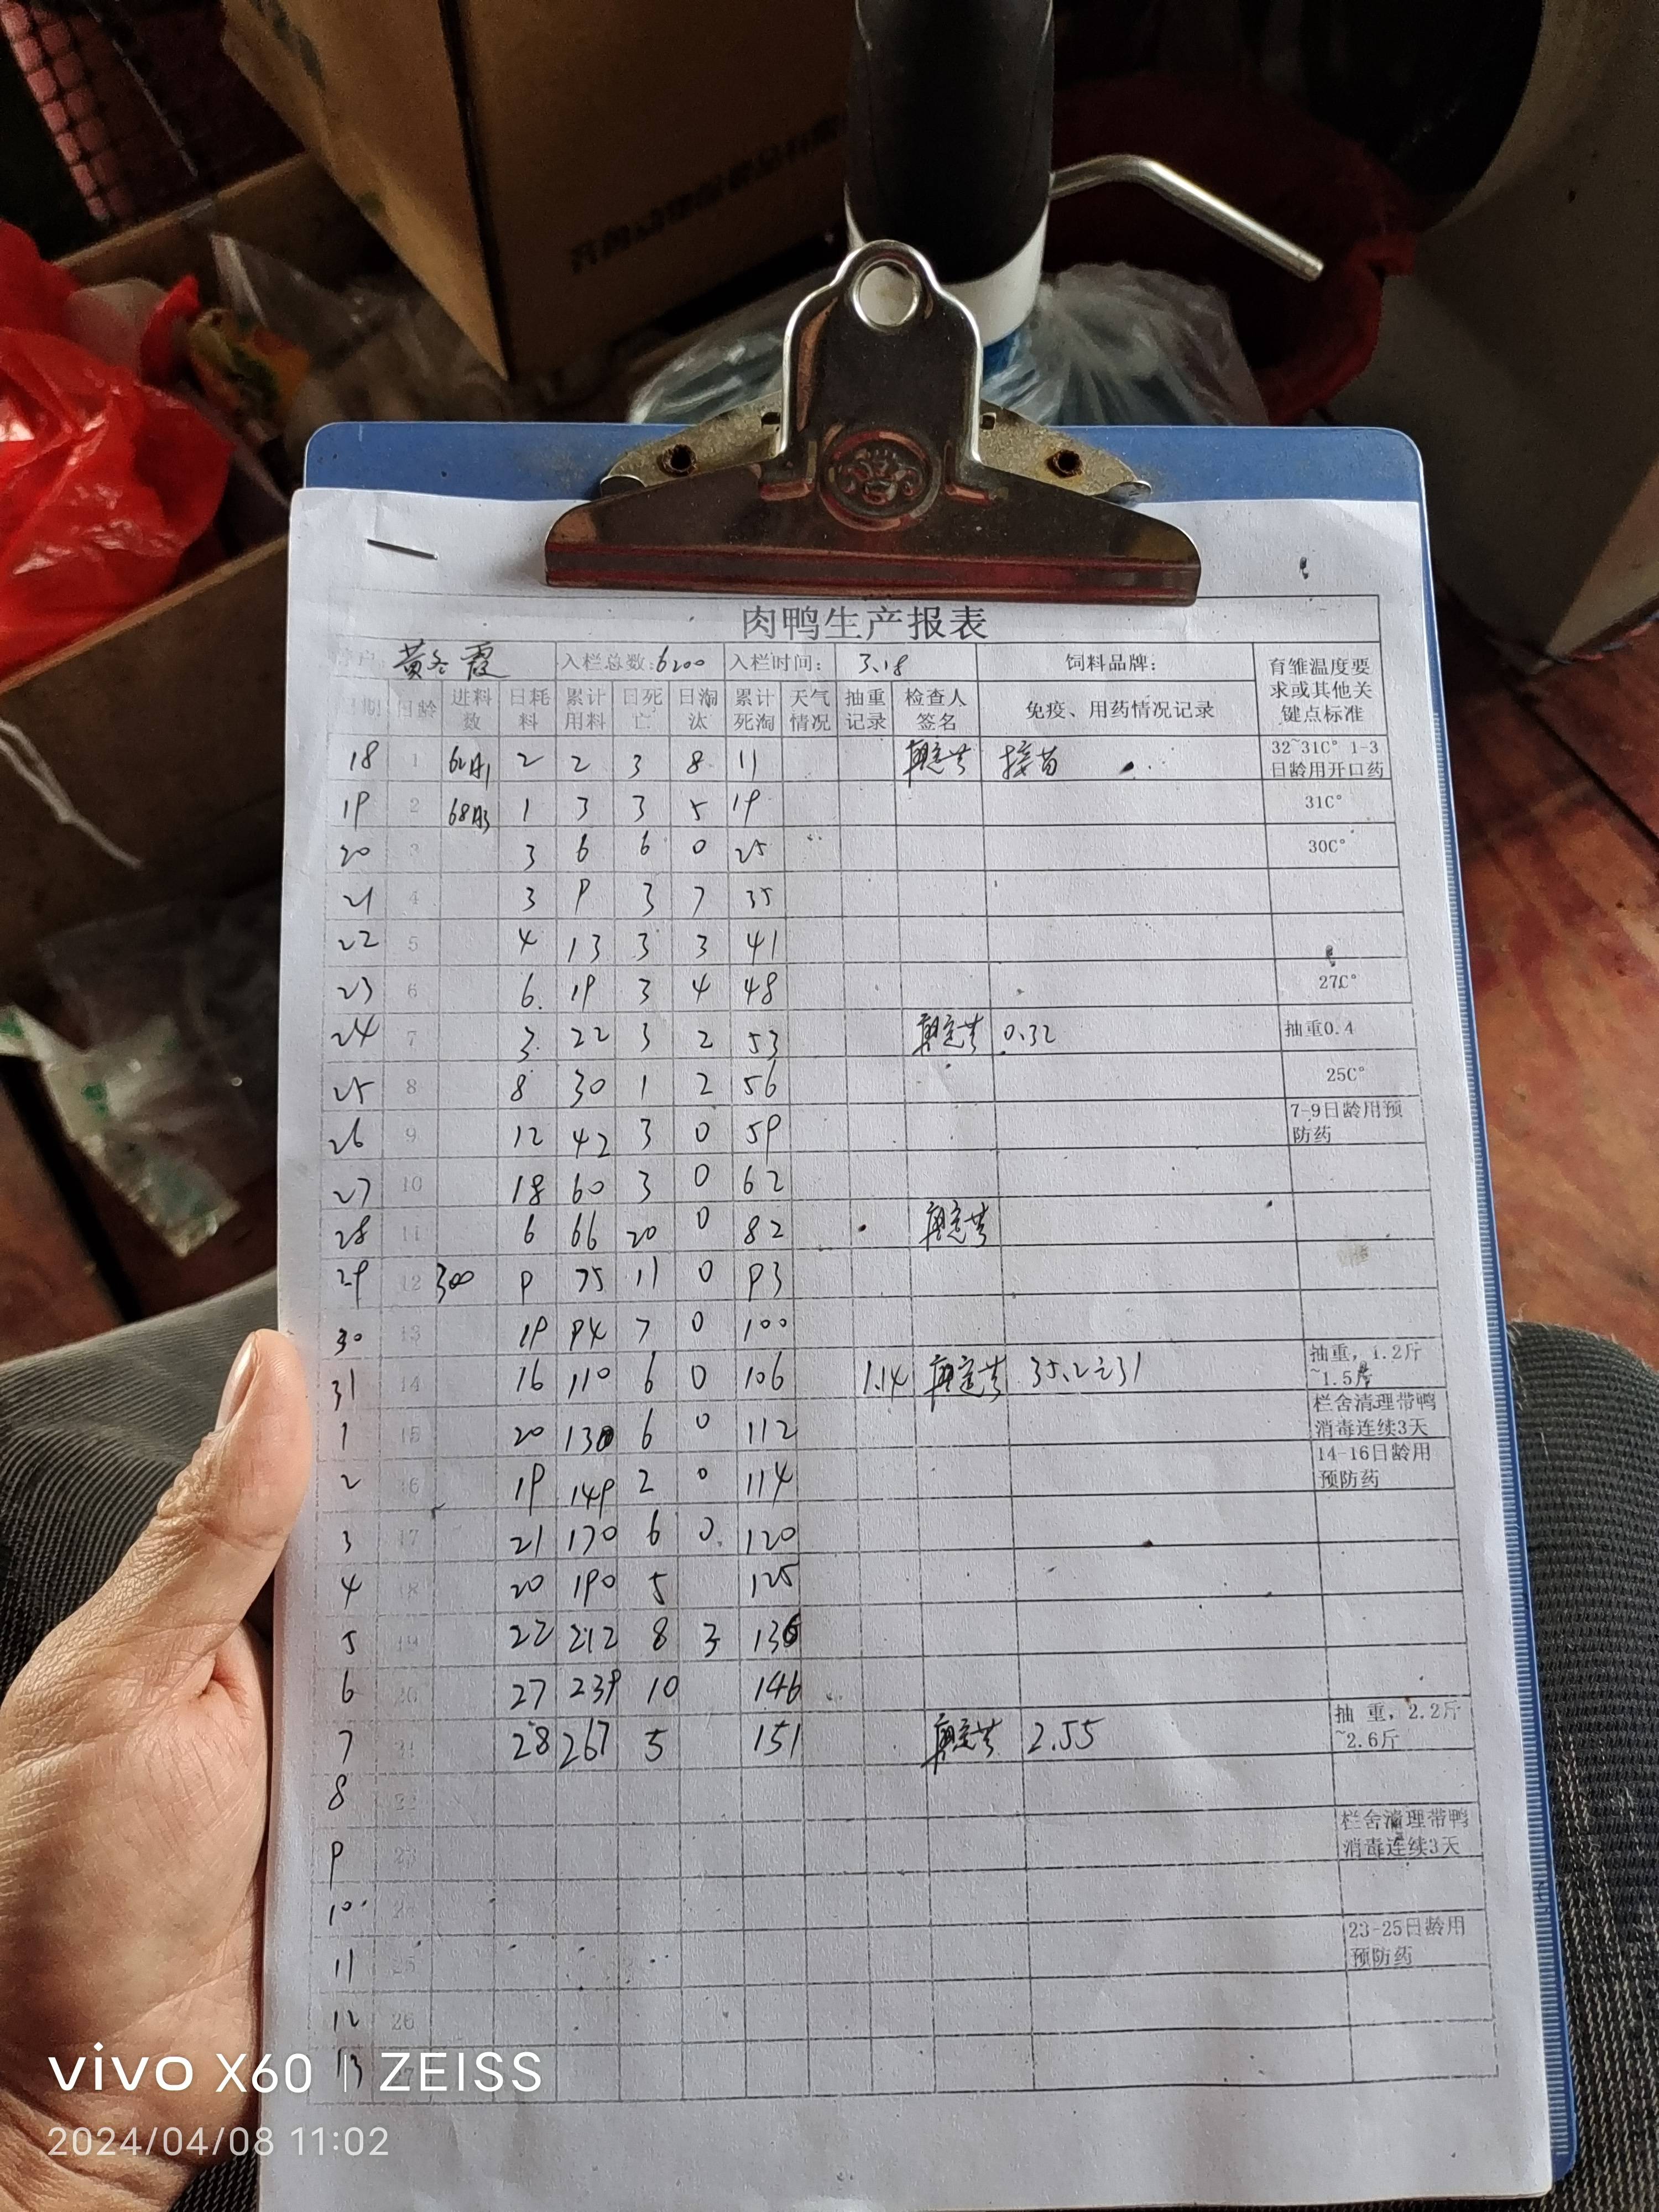 肉鸭生产报表
黄冬霞 入栏总数:6200 入栏时间: 3.18 饲料品牌: 育雏温度要求或其他关键点标准
日期 日龄 进料数 日耗料 累计用料 日死亡 日淘汰 累计死淘 天气情况 抽重记录 检查人签名 免疫、用药情况记录
18 1 2 2 3 8 11 接苗 32~31C° 1-3日龄用开口药
19 2 1 3 3 5 19 31C°
20 3 3 6 6 0 25 30C°
21 4 3 9 3 7 35
22 5 4 13 3 3 41
23 6 6 19 3 4 48 27C°
24 7 3 22 3 2 53 0.32 抽重0.4
25 8 8 30 1 2 56 25C°
26 9 12 42 3 0 59 7-9日龄用预防药
27 10 18 60 3 0 62
28 11 6 66 20 0 82
29 12 300 9 75 11 0 93
30 13 19 94 7 0 100
31 14 16 110 6 0 106 1.14 抽重，1.2斤~1.5斤
1 15 20 130 6 0 112 栏舍清理带鸭消毒连续3天
2 16 19 149 2 0 114 14-16日龄用预防药
3 17 21 170 6 0 120
4 18 20 190 5 125
5 19 22 212 8 3 136
6 20 27 239 10 146
7 21 28 267 5 151 2.55 抽 重，2.2斤~2.6斤
8 22
9 23 栏舍清理带鸭消毒连续3天
10 24
11 25 23-25日龄用预防药
12 26
13 27
vivo X60 | ZEISS
2024/04/08 11:02